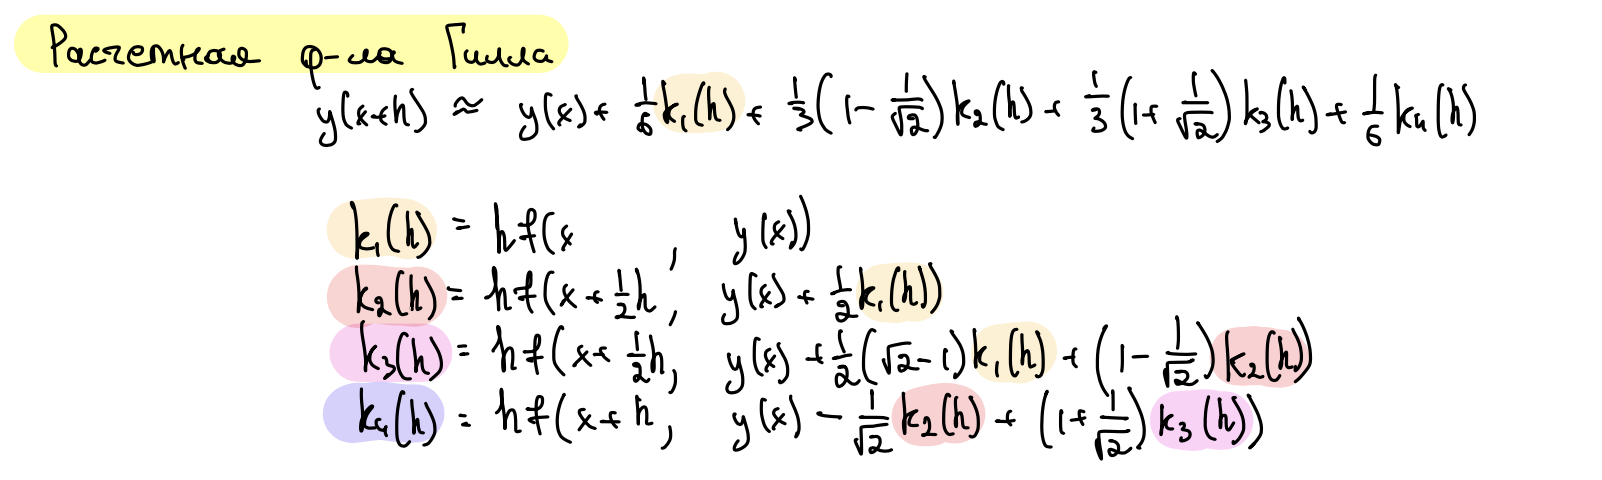 Расчетная ф-ла Гилла
y(x+h) ≈ y(x) + 1/6 k₁(h) + 1/3 (1 - 1/√2) k₂(h) + 1/3 (1 + 1/√2) k₃(h) + 1/6 k₄(h)
k₁(h) = hf(x, y(x))
k₂(h) = hf(x + 1/2 h, y(x) + 1/2 k₁(h))
k₃(h) = hf(x + 1/2 h, y(x) + 1/2 (√2 - 1) k₁(h) + (1 - 1/√2) k₂(h))
k₄(h) = hf(x + h, y(x) - 1/√2 k₂(h) + (1 + 1/√2) k₃(h))